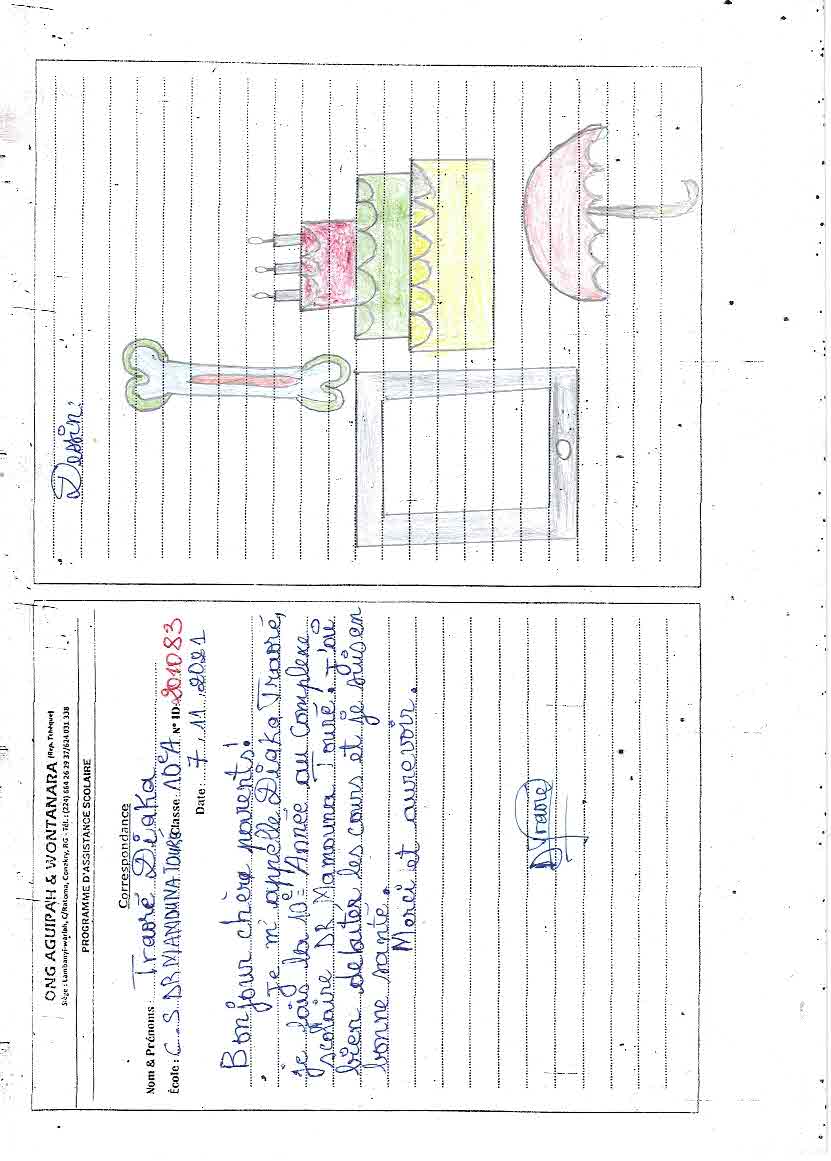 ONG AGUIPAH & WONTANARA (Rep. Tchèque)
Siège : Lambanyi-wariah, C/Ratoma, Conakry, RG - Tél. : (224) 664 26 29 37/624 031 338
PROGRAMME D'ASSISTANCE SCOLAIRE
Correspondance
Nom & Prénoms : Traoré Diaka
École : C.S. DR MAMOUNA TOURÉ Classe : 10e A N° ID : 201083
Date : 7.11.2021
Bonjour chère parents!
Je m'appelle Diaka Traoré,
je fais la 10e Année au Complexe
scolaire DR Mamouna Touré. J'ai
bien debuter les cours et je suis en
bonne santé.
Merci et aurevoir.
DTraoré
Dessin: